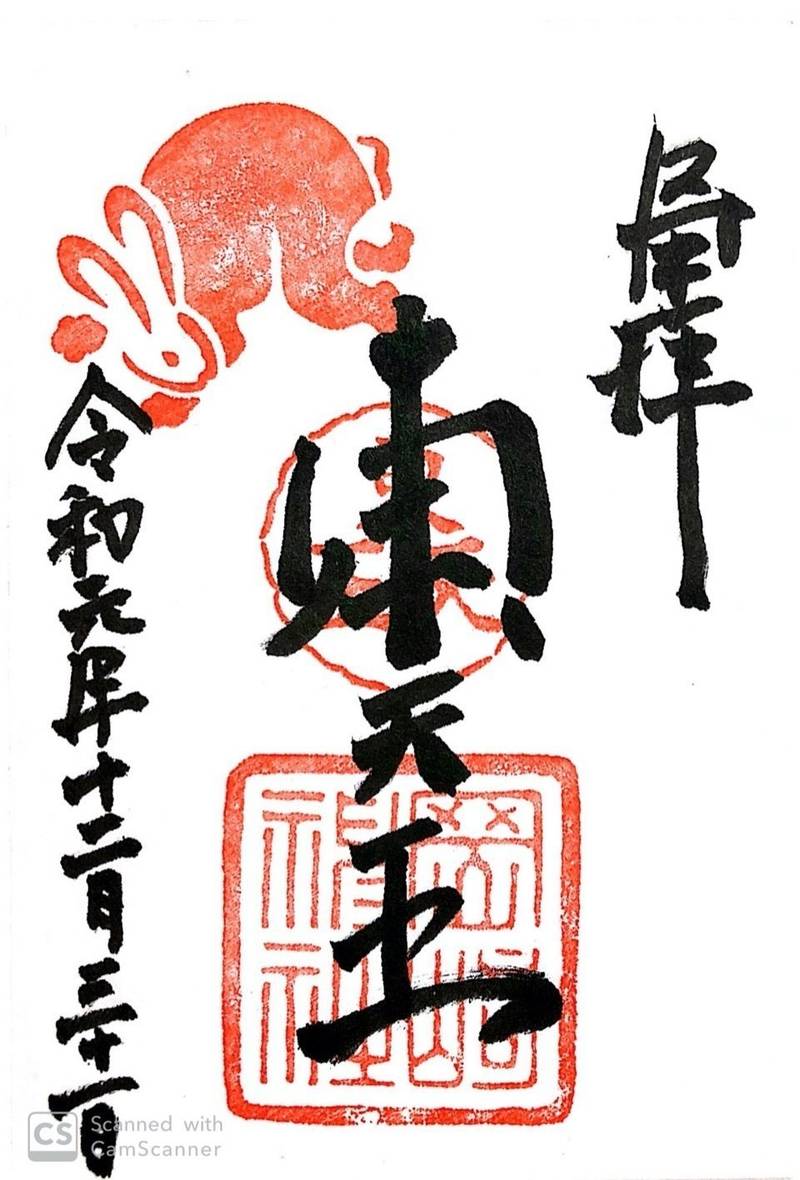 拝
東天王
岡崎神社
令和元年十二月三十一日
CS Scanned with
CamScanner